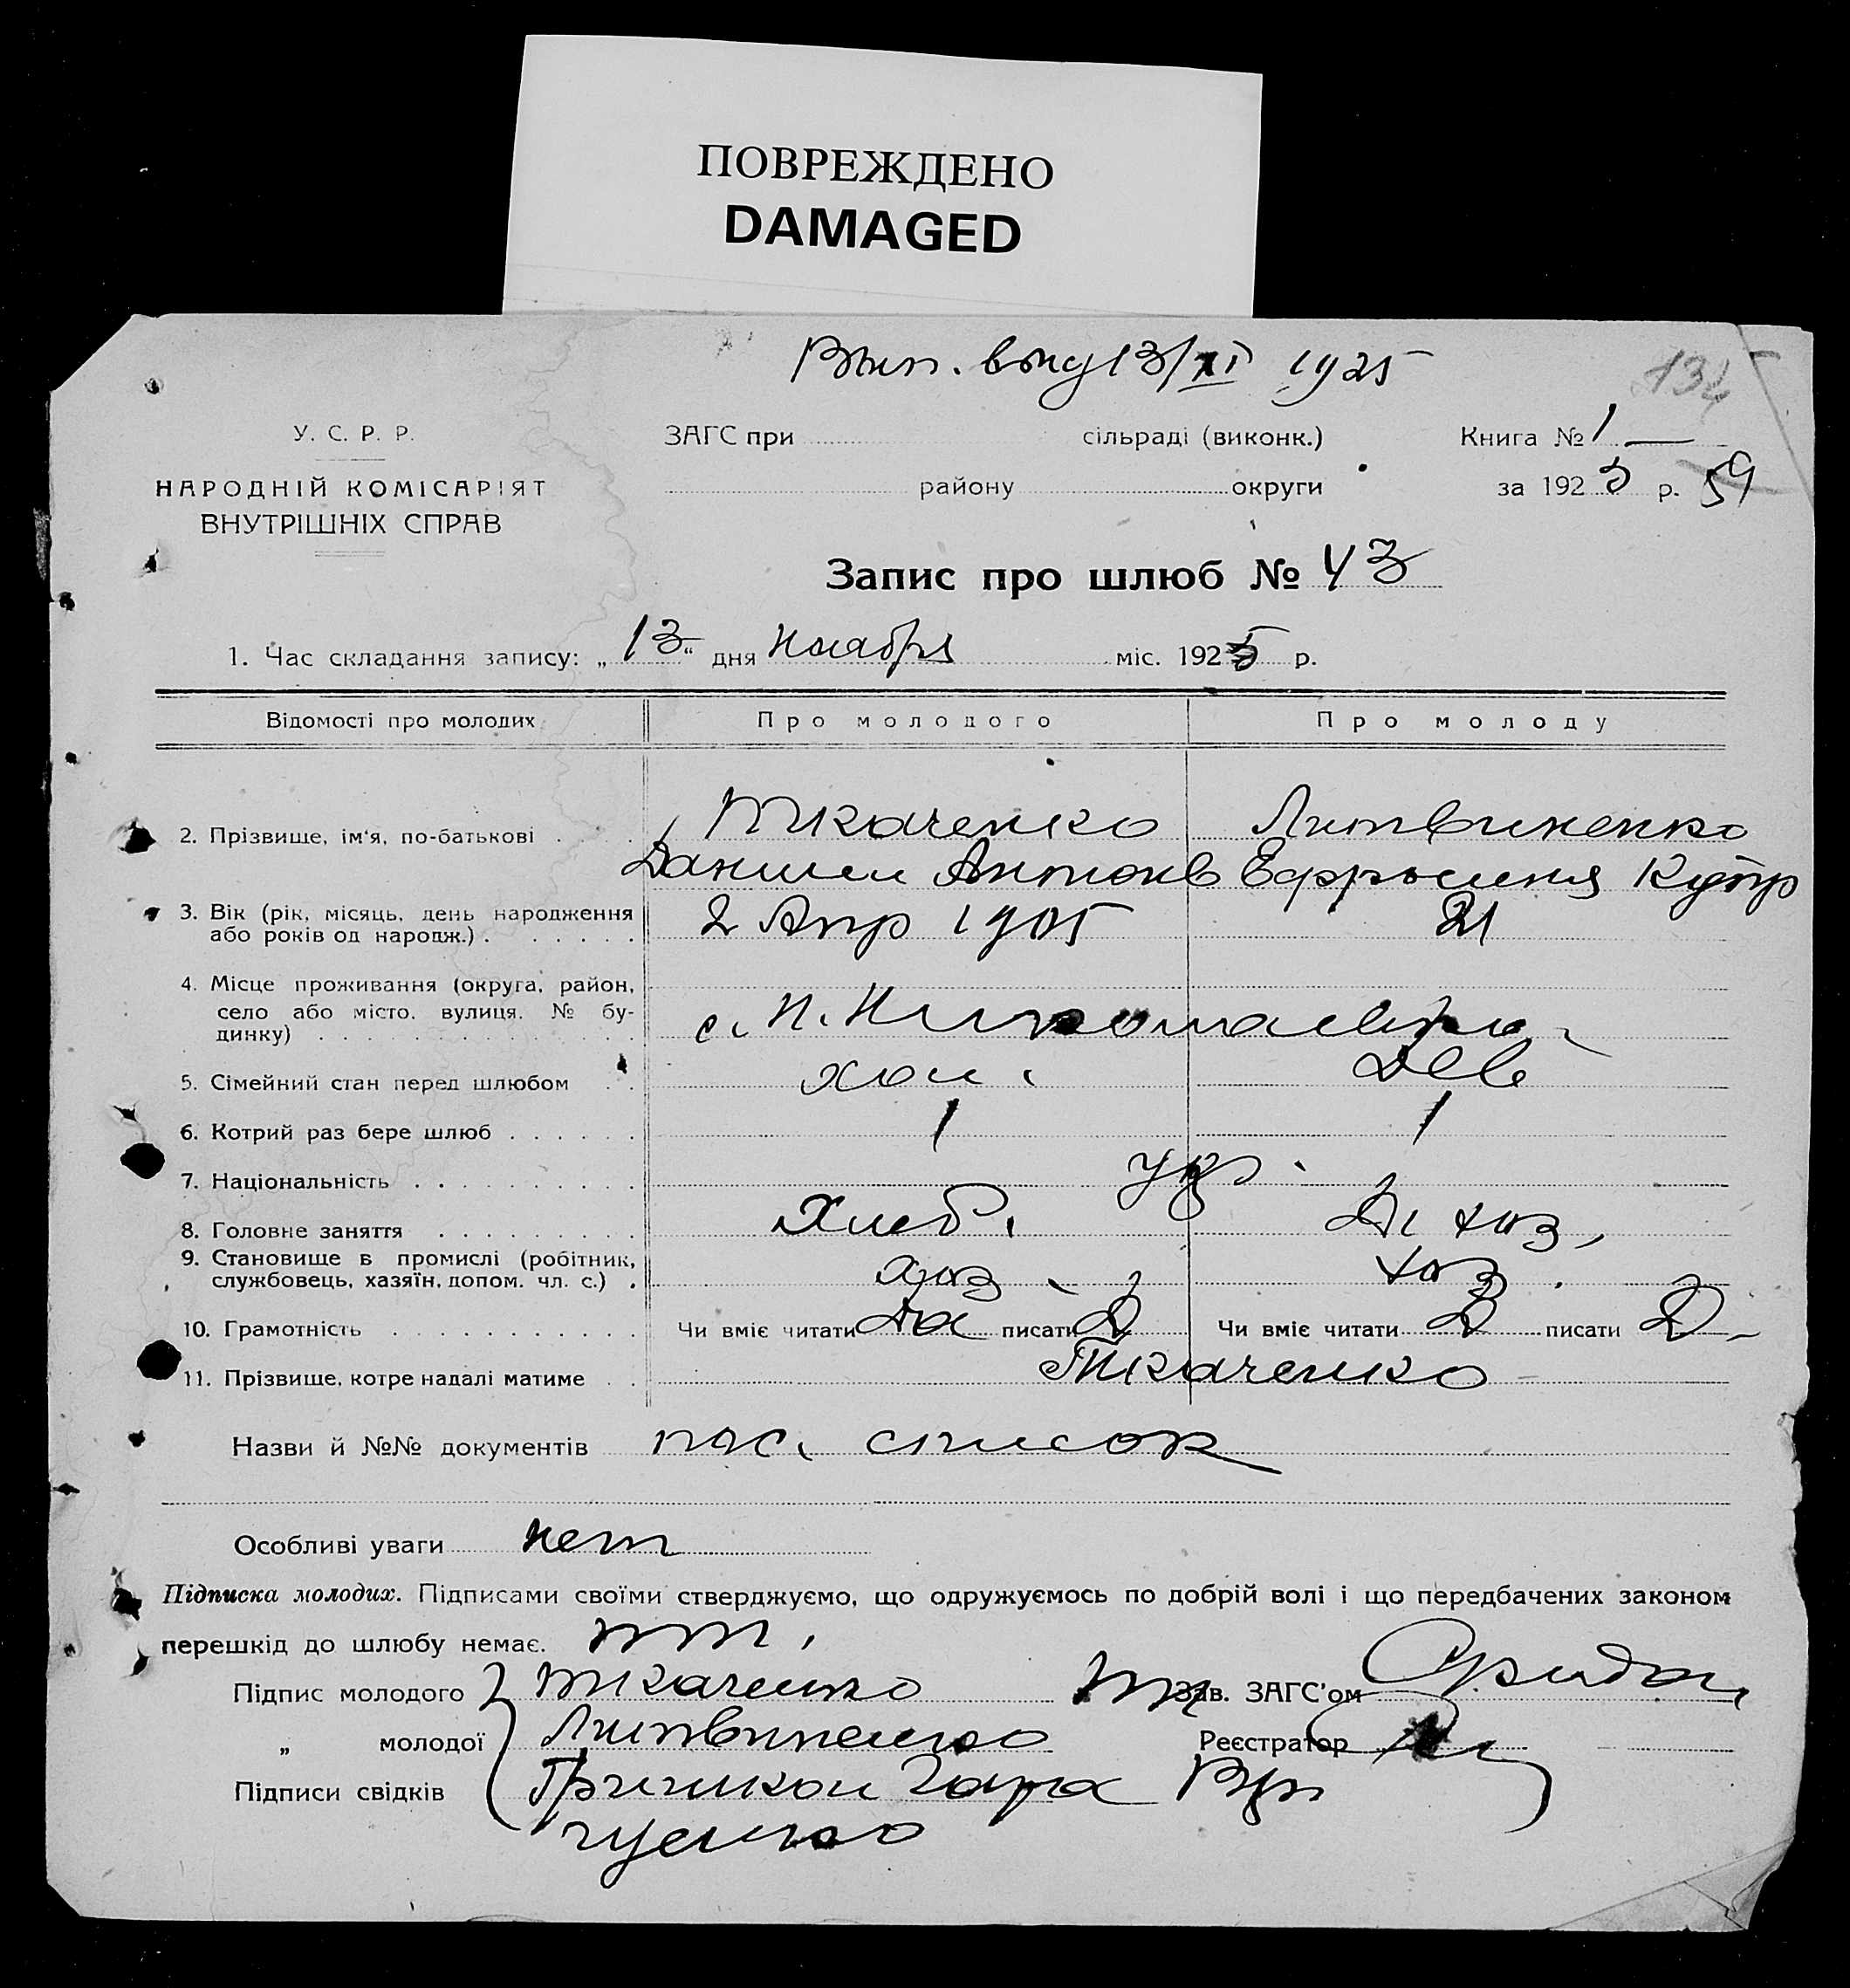 ПОВРЕЖДЕНО
DAMAGED
Вып. выд 13/XI 1925
134
У. С. Р. Р.
НАРОДНІЙ КОМІСАРІЯТ
ВНУТРІШНІХ СПРАВ
ЗАГС при сільраді (виконк.)
району округи
Книга № 1
за 1925 р. 59
Запис про шлюб № 43
1. Час складання запису: „13“ дня Ноября міс. 1925 р.
Відомості про молодих Про молодого Про молоду
2. Прізвище, ім'я, по-батькові Ткаченко Литвиненко
Даниил Антонв Ефросиния Купр
3. Вік (рік, місяць, день народження
або років од народж.) 2 Апр 1905 21
4. Місце проживання (округа, район,
село або місто, вулиця, № бу-
динку) с. Н.
5. Сімейний стан перед шлюбом хол. дев
6. Котрий раз бере шлюб 1 1
7. Національність укр.
8. Головне заняття Хлеб. Д. хоз.
9. Становище в промислі (робітник,
службовець, хазяїн, допом. чл. с.) хоз хоз.
10. Грамотність Чи вміє читати Да писати Д Чи вміє читати Д писати Д
11. Прізвище, котре надалі матиме Ткаченко
Назви й №№ документів пос. список
Особливі уваги нет
Підписка молодих. Підписами своїми стверджуємо, що одружуємось по добрій волі і що передбачених законом
перешкід до шлюбу немає.
Підпис молодого Ткаченко Зав. ЗАГС'ом
„ молодої Литвиненко Реєстратор
Підписи свідків